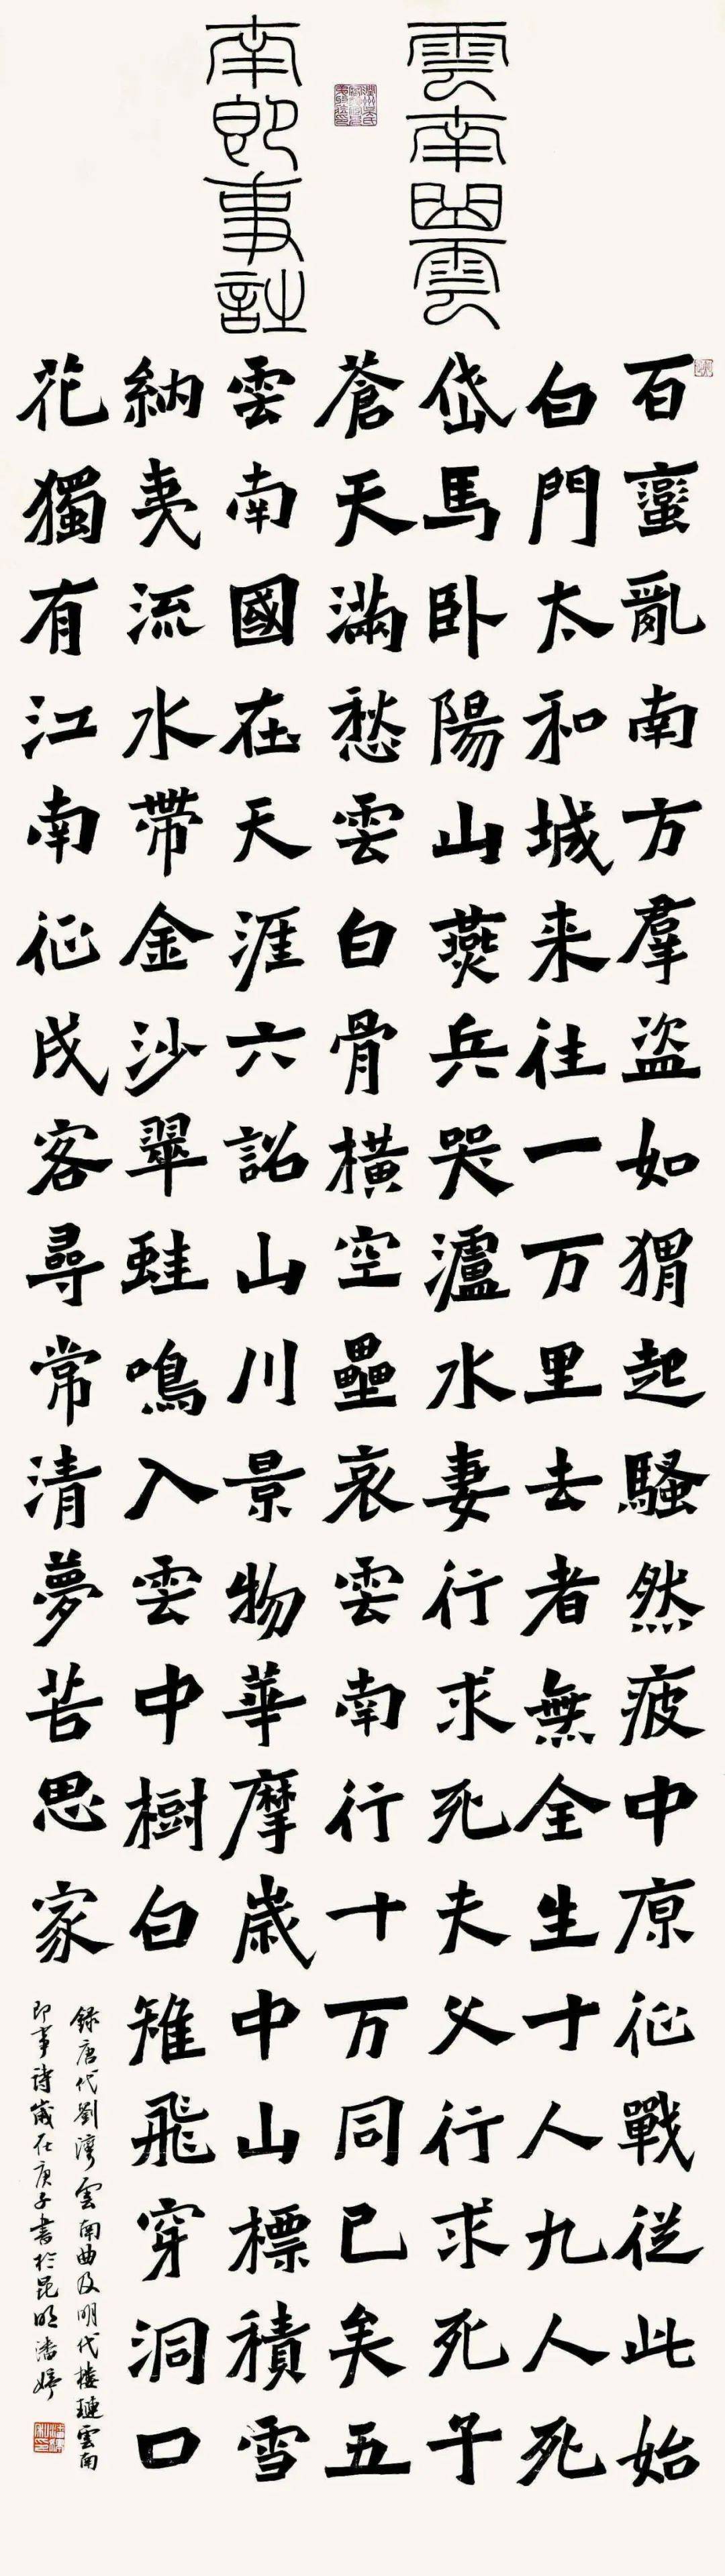 雲南曲雲
南即事詩
百蠻亂南方羣盜如猬起騷然疲中原征戰從此始
白門太和城来往一万里去者無全生十人九人死
岱馬卧陽山燕兵哭瀘水妻行求死夫父行求死子
蒼天滿愁雲白骨橫空壘哀雲南行十万同已矣五
雲南國在天涯六詔山川景物華摩歲中山標積雪
納夷流水帶金沙翠蛙鳴入雲中樹白雉飛穿洞口
花獨有江南征戍客尋常清夢苦思家
錄唐代劉灣雲南曲及明代樓璉雲南
即事詩歲在庚子書於昆明潘婷